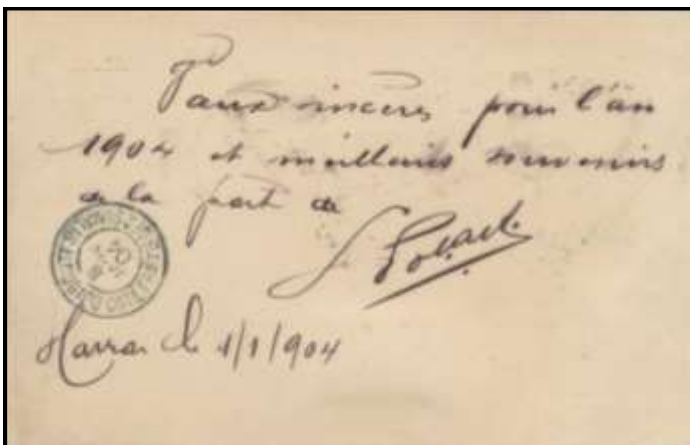 Vœux sincères pour l'an
1904 et meilleurs souvenirs
de la part de
Harrar le 1/1/904